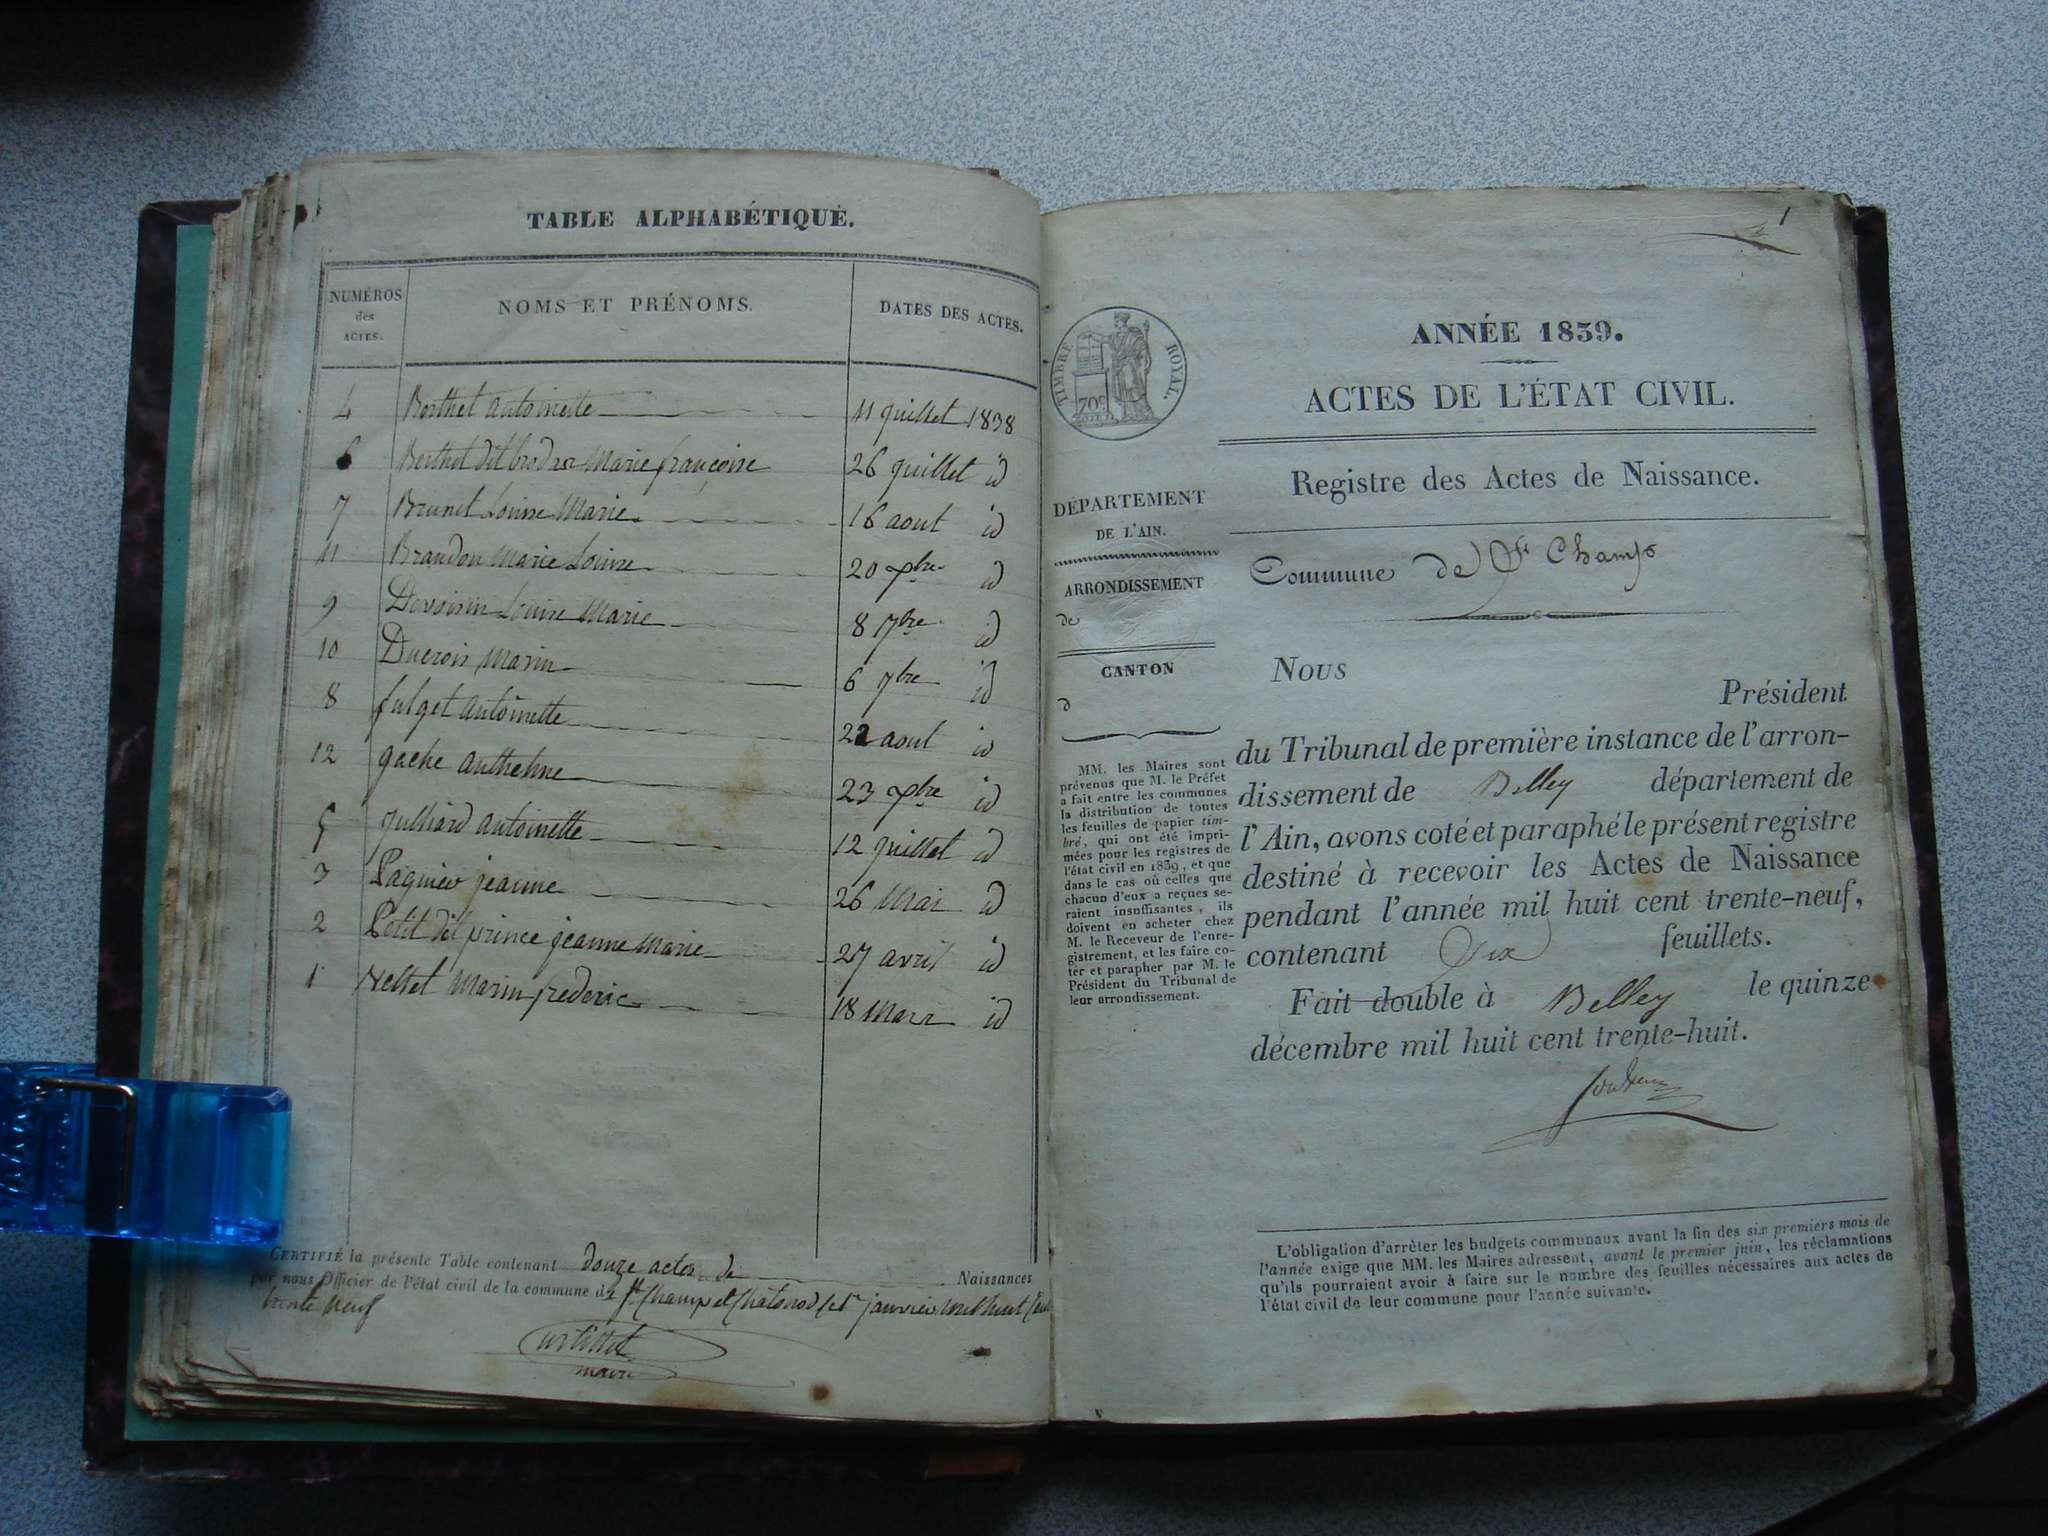 TABLE ALPHABÉTIQUE.
NUMÉROS des ACTES. NOMS ET PRÉNOMS. DATES DES ACTES.
4 Berthet antoinette 11 juillet 1838
6 Berthet dit Marie françoise 26 juillet id
7 Brunet Louise Marie 16 aout id
11 Brandon Marie Louise 20 xbre id
9 Devoisin Louise Marie 8 7bre id
10 Ducroix Marin 6 9bre id
8 fulget antoinette 22 aout id
12 gache anthelme 23 xbre id
5 julliard antoinette 12 juillet id
3 Pagnier jeanne 26 Mai id
2 Petit dit prince jeanne Marie 27 avril id
1 Marin frederic 18 Mars id
CERTIFIÉ la présente Table contenant douze actes de Naissances
par nous Officier de l'état civil de la commune de St Champ et Chatonod le 1er janvier mil huit cent
trente neuf
maire
1
TIMBRE ROYAL.
70c
ANNÉE 1839.
ACTES DE L'ÉTAT CIVIL.
Registre des Actes de Naissance.
DÉPARTEMENT
DE L'AIN.
ARRONDISSEMENT
de
CANTON
d
MM. les Maires sont
prévenus que M. le Préfet
a fait entre les communes
la distribution de toutes
les feuilles de papier tim-
bré, qui ont été impri-
mées pour les registres de
l'état civil en 1839, et que
dans le cas où celles que
chacun d'eux a reçues se-
raient insuffisantes, ils
doivent en acheter chez
M. le Receveur de l'enre-
gistrement, et les faire co-
ter et parapher par M. le
Président du Tribunal de
leur arrondissement.
Commune de St Champ
NOUS
Président
du Tribunal de première instance de l'arron-
dissement de Belley département de
l'Ain, avons coté et paraphé le présent registre
destiné à recevoir les Actes de Naissance
pendant l'année mil huit cent trente-neuf,
contenant Six feuillets.
Fait double à Belley le quinze
décembre mil huit cent trente-huit.
L'obligation d'arrêter les budgets communaux avant la fin des six premiers mois de
l'année exige que MM. les Maires adressent, avant le premier juin, les réclamations
qu'ils pourraient avoir à faire sur le nombre des feuilles nécessaires aux actes de
l'état civil de leur commune pour l'année suivante.